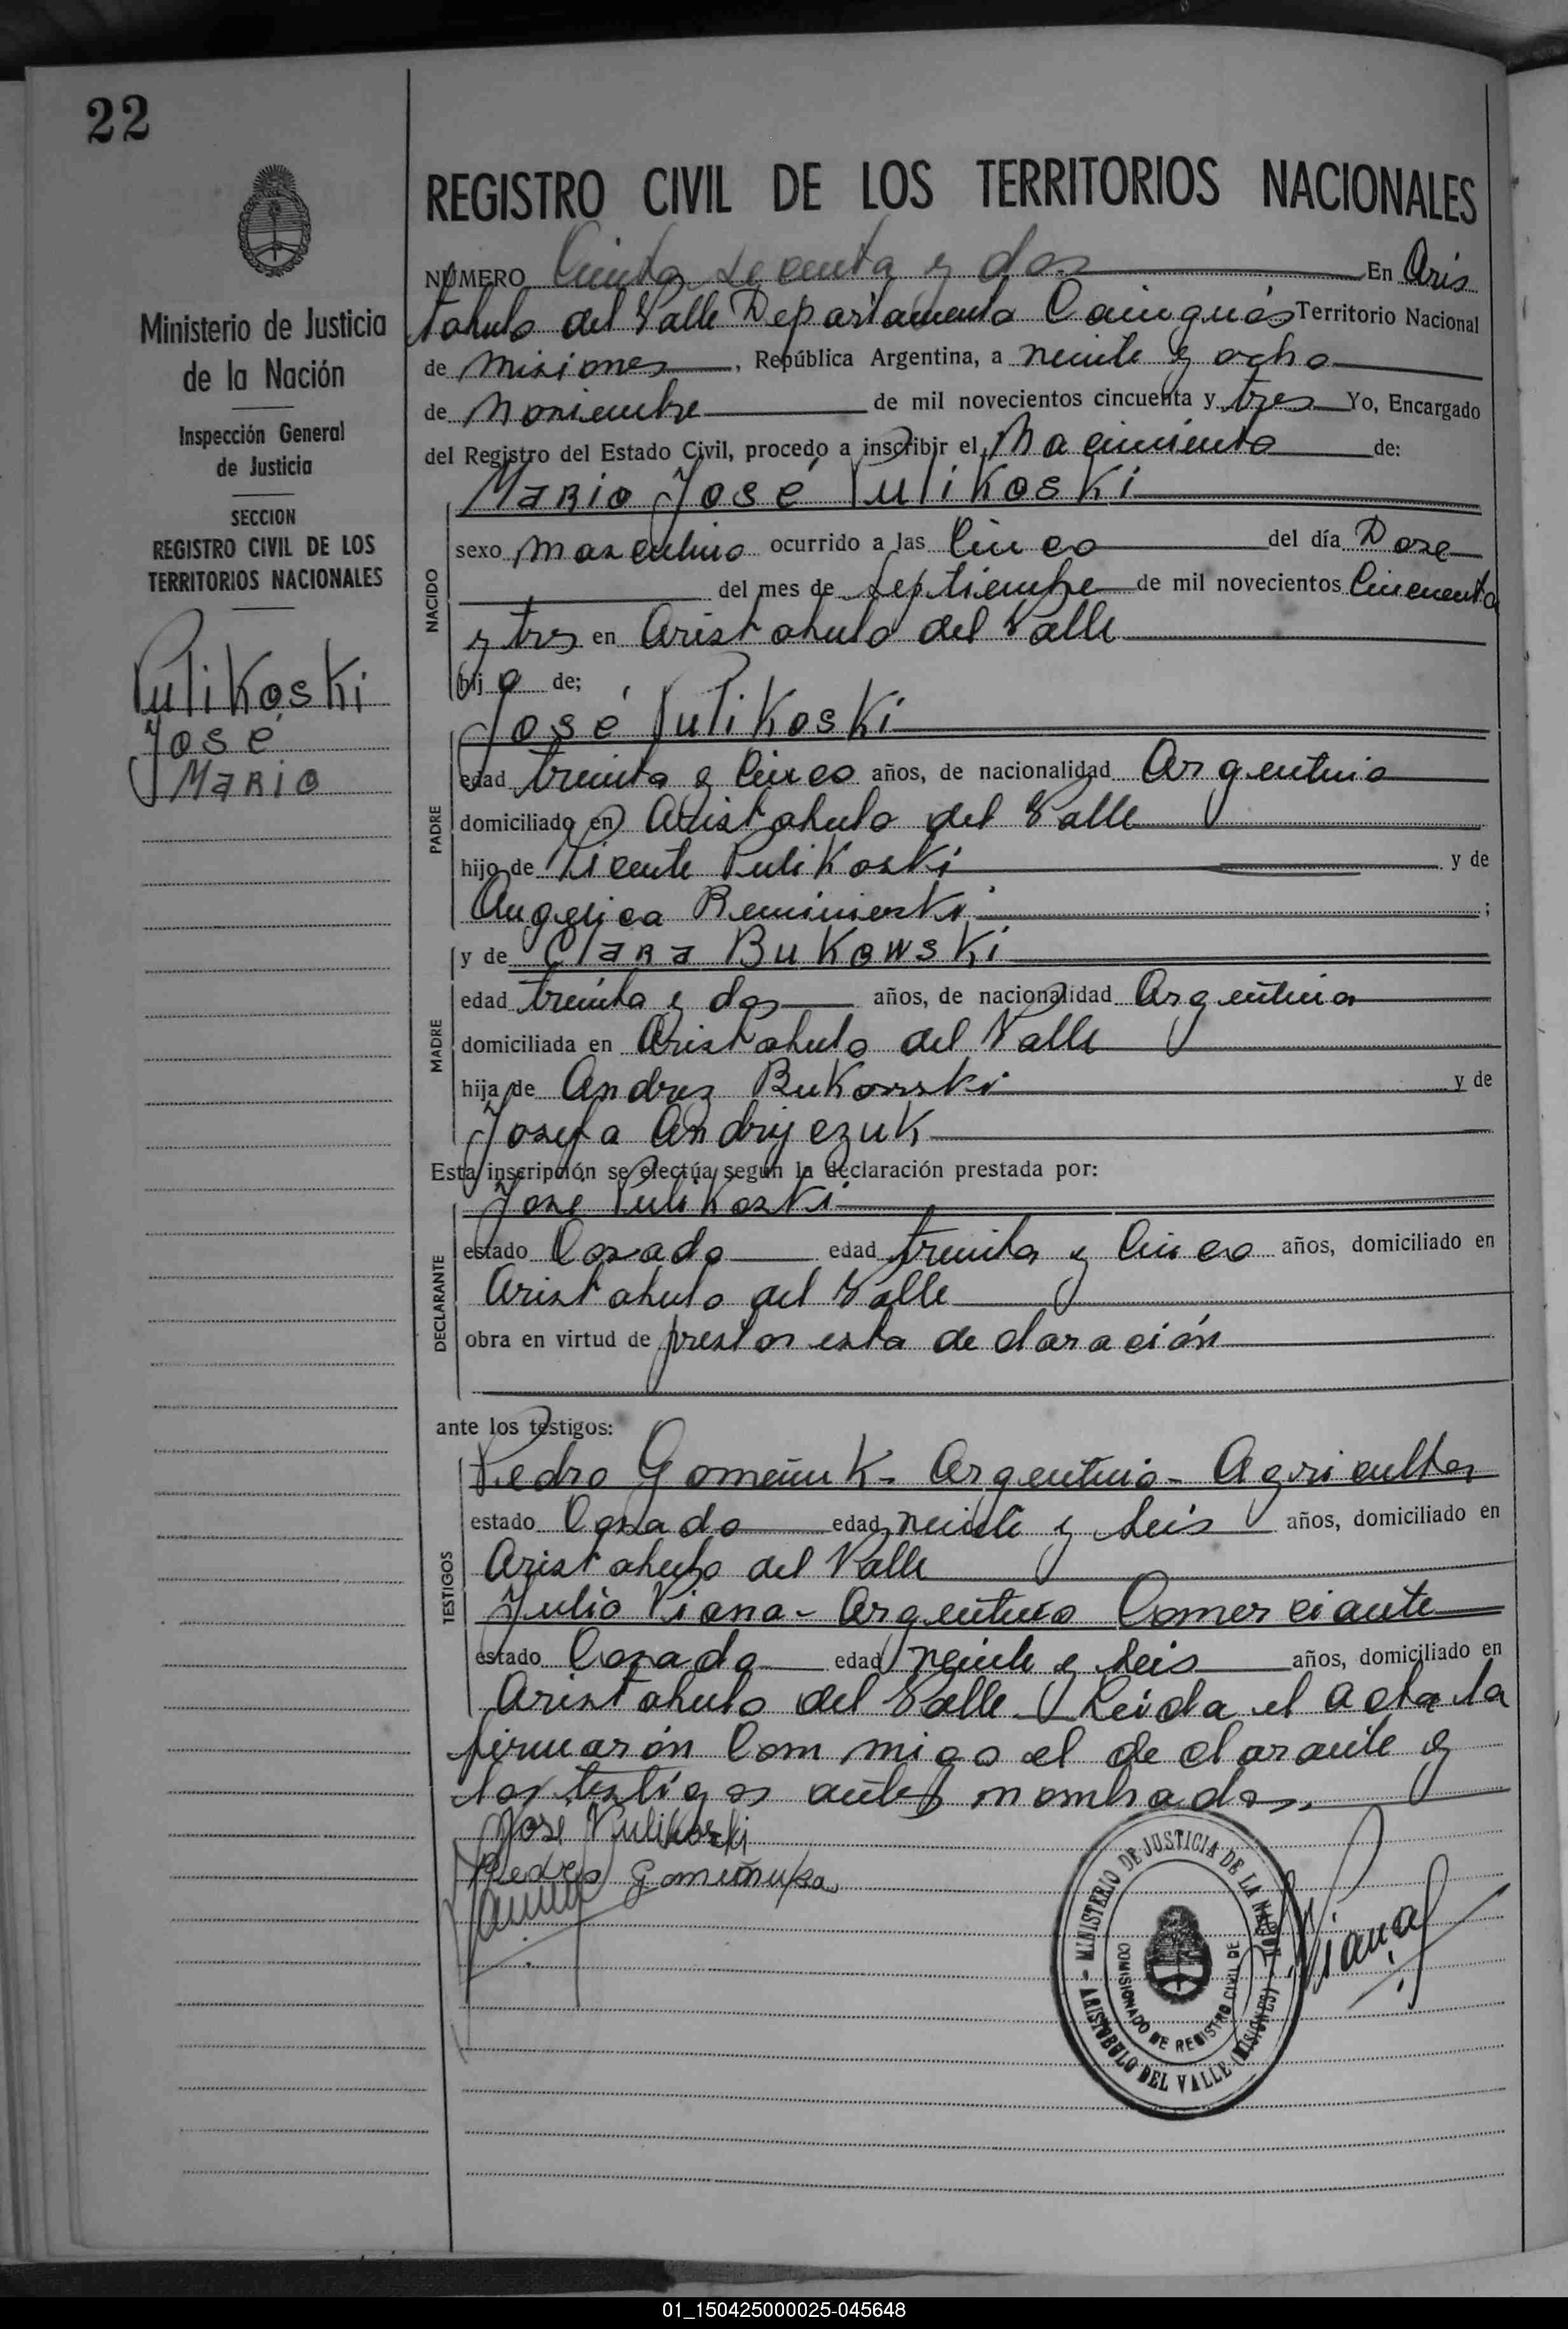 22
Ministerio de Justicia
de la Nación
Inspección General
de Justicia
SECCION
REGISTRO CIVIL DE LOS
TERRITORIOS NACIONALES
Pulikoski
José
Mario
REGISTRO CIVIL DE LOS TERRITORIOS NACIONALES
NÚMERO Ciento sesenta y dos En Aris
tobulo del Valle Departamento Cainguás Territorio Nacional
de Misiones, República Argentina, a veinte y ocho
de Noviembre de mil novecientos cincuenta y tres Yo, Encargado
del Registro del Estado Civil, procedo a inscribir el Nacimiento de:
Mario José Pulikoski
NACIDO
sexo masculino ocurrido a las Cinco del día Doze
del mes de septiembre de mil novecientos Cincuenta
y tres en Aristobulo del Valle
hijo de;
José Pulikoski
PADRE
edad treinta y Cinco años, de nacionalidad Argentino
domiciliado en Aristobulo del Valle
hijo de Vicente Pulikoski y de
Angelica ;
y de Clara Bukowski
MADRE
edad treinta y dos años, de nacionalidad Argentina
domiciliada en Aristobulo del Valle
hija de Andres Bukowski y de
Josefa Andrijczuk
Esta inscripción se efectúa según la declaración prestada por:
José Pulikoski
DECLARANTE
estado Casado edad treinta y Cinco años, domiciliado en
Aristobulo del Valle
obra en virtud de prestar esta declaración
ante los testigos:
TESTIGOS
Pedro Gomeñuk - Argentino - Agricultor
estado Casado edad veinte y seis años, domiciliado en
Aristobulo del Valle
Julio Viana - Argentino Comerciante
estado Casado edad veinte y seis años, domiciliado en
Aristobulo del Valle Leida el acta la
firmarón Com migo el declarante y
los testigos antes nombrados.
José Pulikoski
Pedro
Viana
MINISTERIO DE JUSTICIA DE LA NACION
COMISIONADO DE REGISTRO CIVIL DE
ARISTOBULO DEL VALLE (MISIONES)
01_150425000025-045648